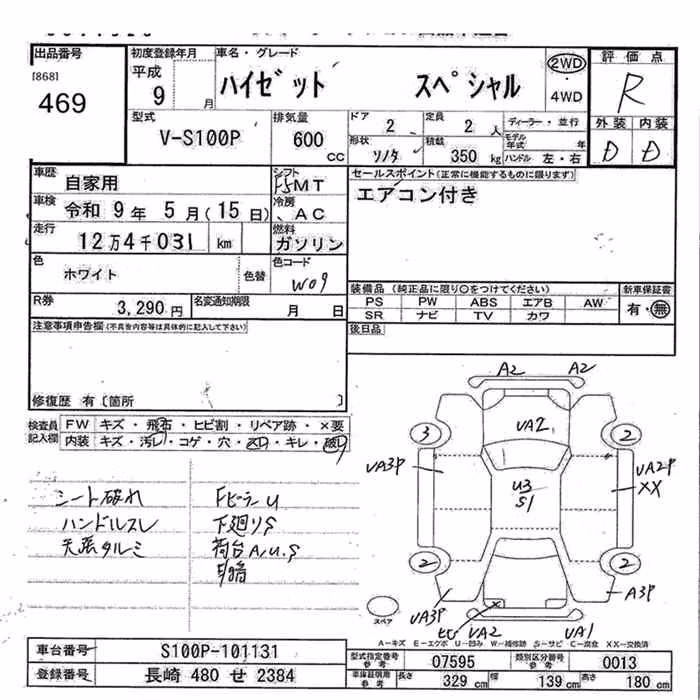 出品番号
[868]
469
初度登録年月
平成
9 月
車名・グレード
ハイゼット スペシャル
2WD
・
4WD
評価点
R
型式
V-S100P
排気量
600 CC
ドア
2
定員
2 人
形状
積載
350 kg
ディーラー・並行
モデル年式 年
ハンドル 左・右
外装 内装
D D
車歴
自家用
シフト
F5MT
車検
令和 9 年 5 月 (15 日)
冷房
AC
走行
12万4千031 km
燃料
ガソリン
色
ホワイト
色替
色コード
W09
R券
3,290 円
名変通知期限
月 日
セールスポイント(正常に機能するものに限ります)
エアコン付き
装備品 (純正品に限り〇をつけてください)
PS PW ABS エアB AW
SR ナビ TV カワ
新車保証書
有・無
後日品
注意事項申告欄(不具合内容等は具体的に記入して下さい)
修復歴 有〔箇所 〕
検査員記入欄
FW キズ・飛石・ヒビ割・リペア跡・×要
内装 キズ・汚レ・コゲ・穴・スレ・キレ・破レ
シート破れ
ハンドルスレ
天張タルミ
FピラーU
下廻りS
荷台A,U,S
A2 A2
UA2
3 2
UA3P
U3
S1
UA2P
XX
2 2
UA3P
A3P
UA2 UA1
スペア
A-キズ E-エクボ U-凹み W-補修跡 S-サビ C-腐食 XX-交換済
車台番号
S100P-101131
登録番号
長崎 480 せ 2384
型式指定番号
参考
07595
類別区分番号
参考
0013
車庫証明用
参考
長さ
329 cm
幅
139 cm
高さ
180 cm